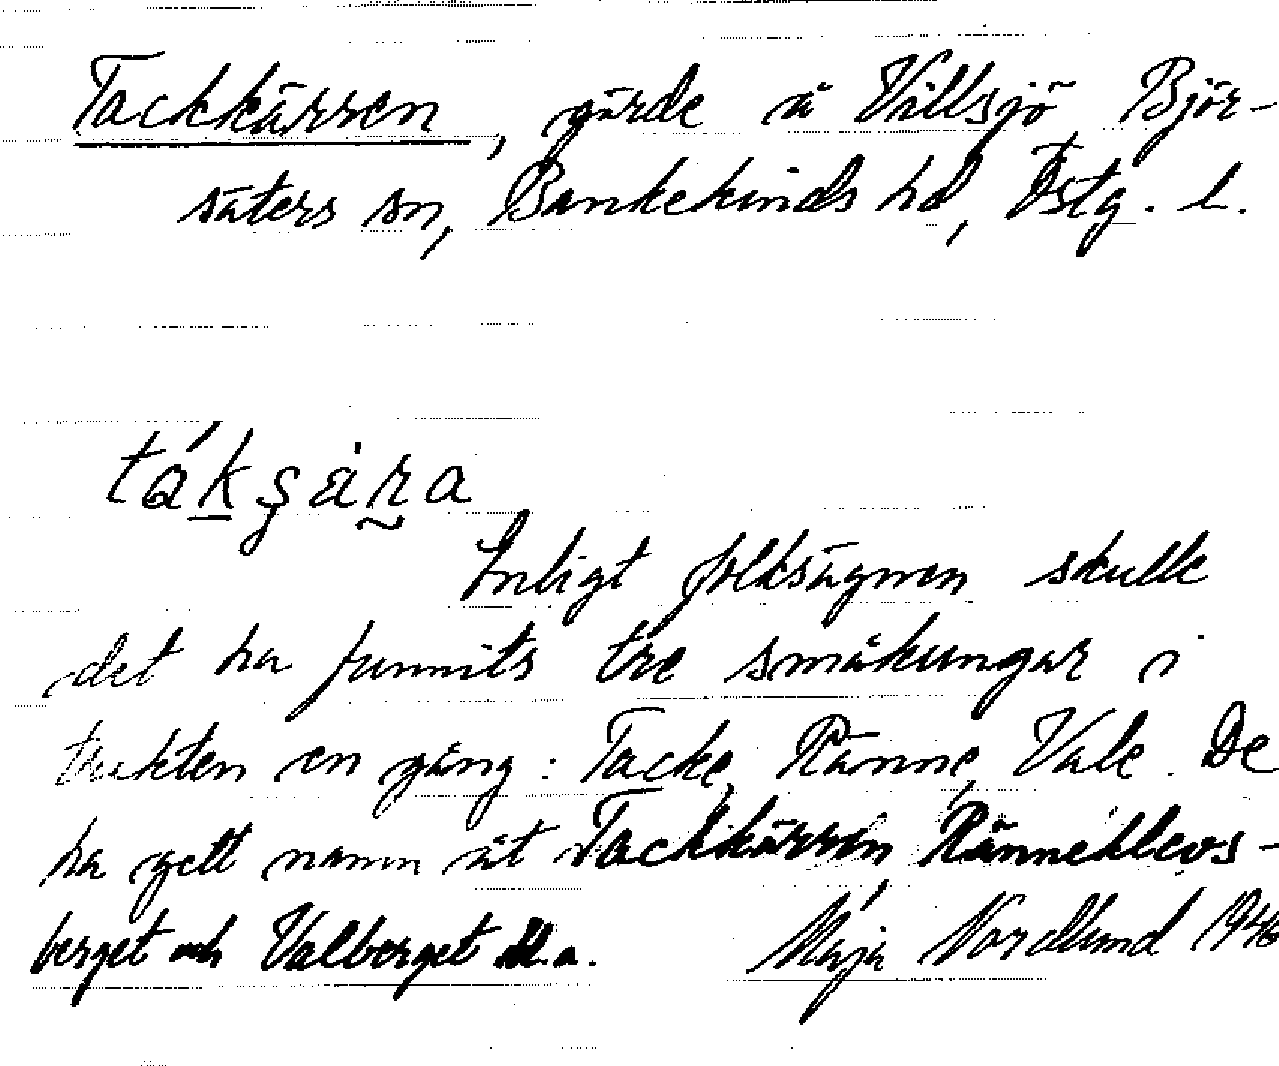 Tackkärren, gärde å Vällsjö Björ-
säters sn, Bankekinds hd, Östg. l.
tákşàra
Enligt folksägnen skulle
det ha funnits tre småkungar i
trakten en gång: Tacke, Ränne, Vale. De
ha gett namn åt Tackkärren Ränneklevs-
berget och Valberget
Maja Nordlund 1946